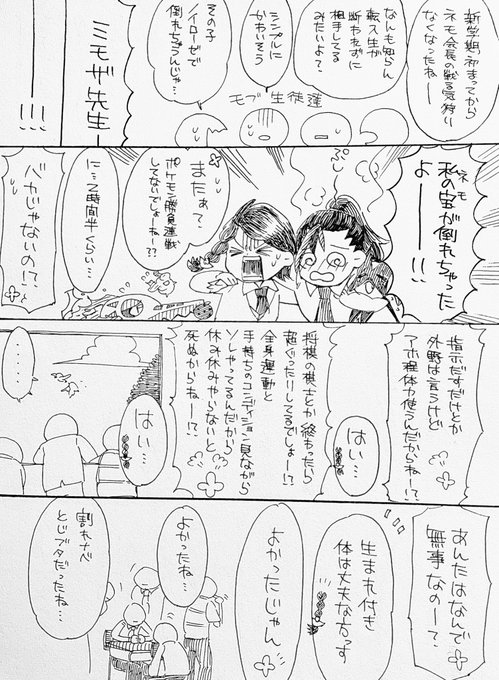 新学期初まってから
ネモ会長の戦る気狩り
なくなったねー
なんも知らん
転入生が
断わらずに
相手してる
みたいよ?
シンプルに
かわいそう
その子
ノイローゼで
倒れちゃうんじゃ…
モブ生徒達
ミモザ先生ーー!!!
ネモ
私の宝が倒れちゃった
よーーー!!!
またぁ?
ポケモン勝負連戦
してないでしょーね!?
に…2時間半くらい…
バカじゃないの!?
指示だすだけとか
外野は言うけど
アホ程体力使うんだからねー!?
はい…
将棋の棋士とか終わったら
超ぐったりしてるでしょー!?
全身運動と
手持ちのコンディション見ながら
ソレやってるんだから
休み休みやらないと
死ぬからねー!?
はい…
・・・・
あんたはなんで
無事なのー?
生まれ付き
体は丈夫な方っす
よかったじゃん
よかったね…
割れナベ
とじブタだったね…